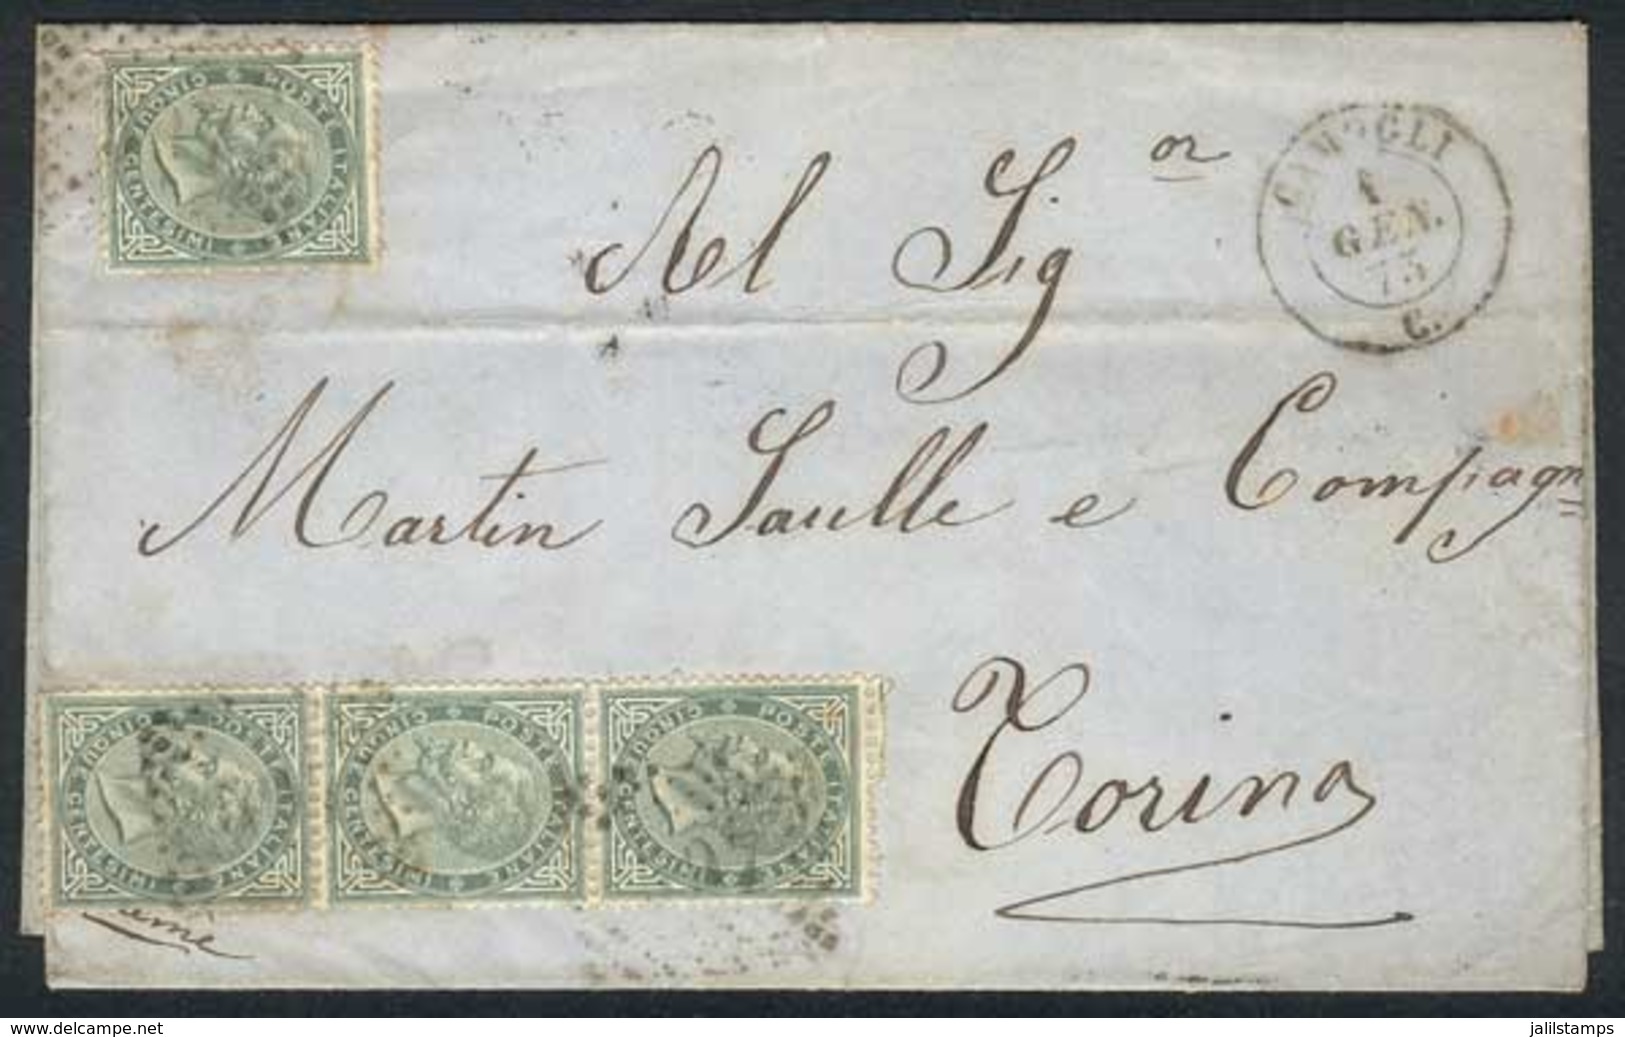 POSTE ITALIANE CINQUE CENTESIMI
Al Sig or
CAMOGLI
1
GEN.
75
C.
Martin Saulle e Compagn
Torino
POSTE ITALIANE CINQUE CENTESIMI
POSTE ITALIANE CINQUE CENTESIMI
POSTE ITALIANE CINQUE CENTESIMI
delcampe.net
jalilstamps